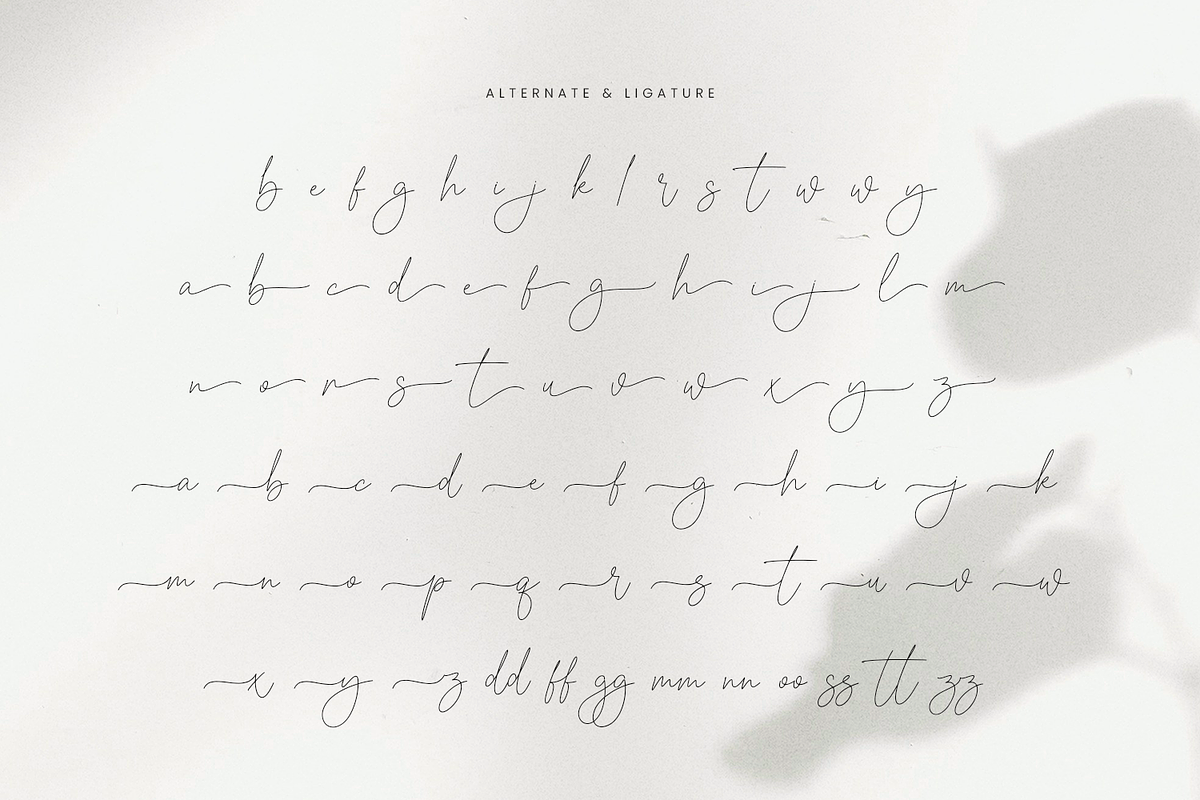 ALTERNATE & LIGATURE
b e f g h i j k l r s t w w y
a b c d e f g h i j l m
n o r s t u v w x y z
a b c d e f g h i j k
m n o p q r s t u v w
x y z dd ff gg mm nn oo ss tt zz